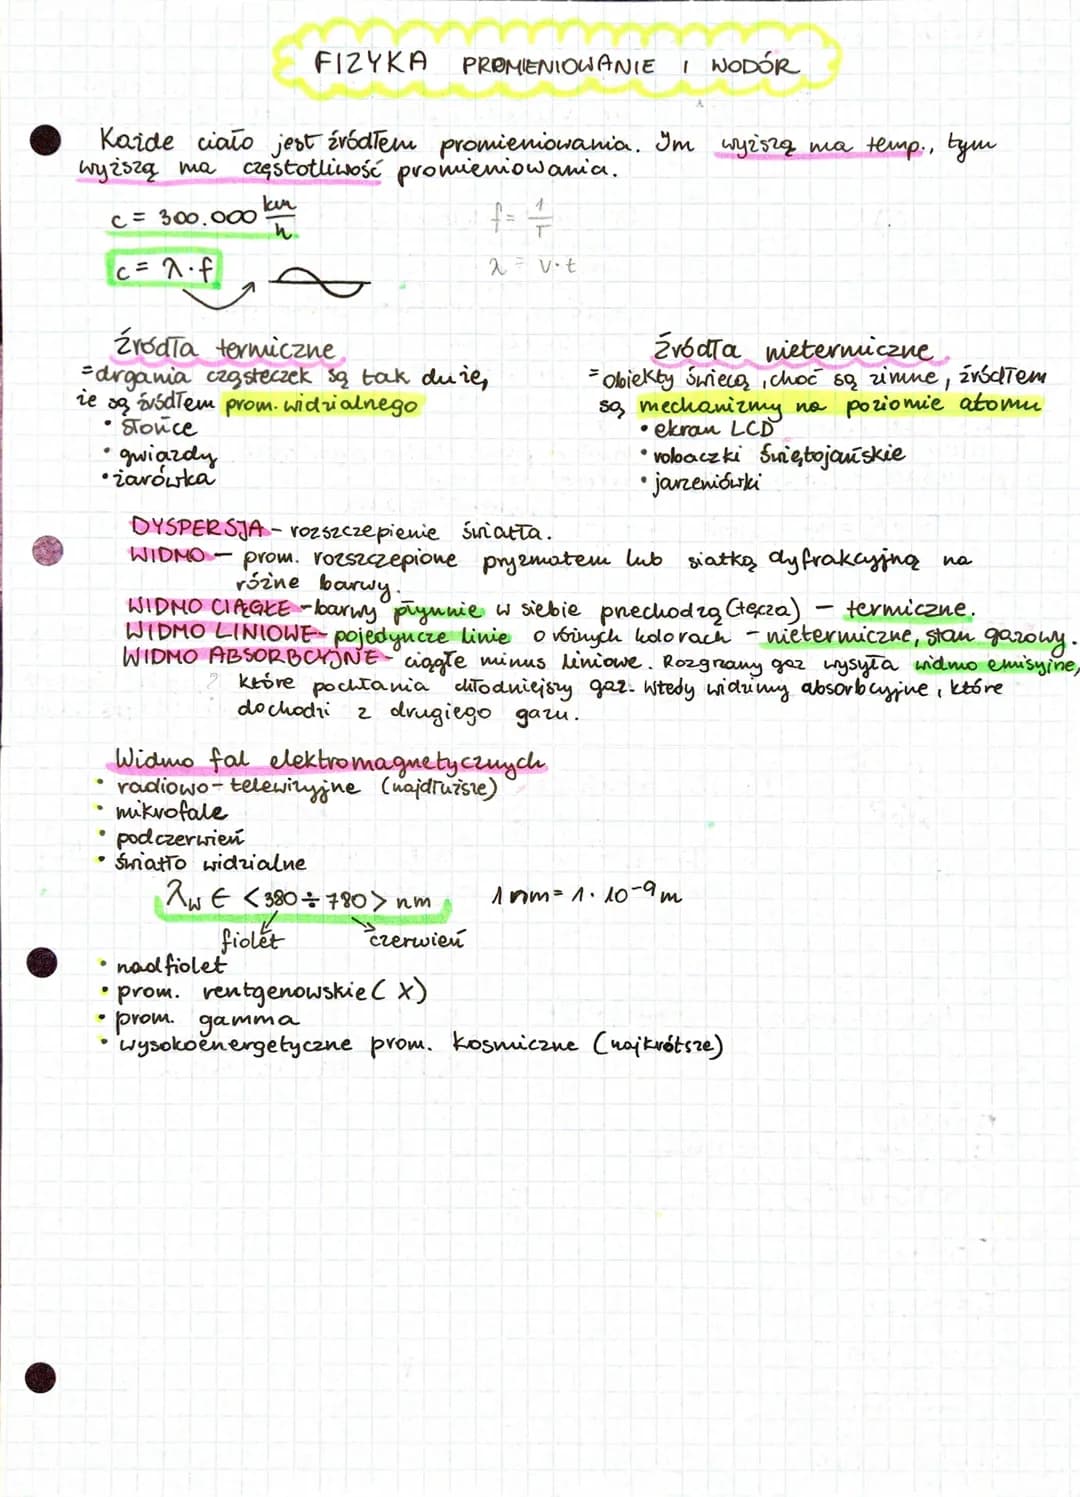 FIZYKA PROMIENIOWANIE I WODÓR
Każde ciało jest źródłem promieniowania. Im wyższą ma temp., tym
wyższą ma częstotliwość promieniowania.
c = 300.000 km/h
f = 1/T
c = λ·f
λ = v·t
Źródła termiczne
= drgania cząsteczek są tak duże,
że są źródłem prom. widzialnego
• Słońce
• gwiazdy
• żarówka
Źródła nietermiczne
= obiekty świecą, choć są zimne, źródłem
są mechanizmy na poziomie atomu
• ekran LCD
• robaczki świętojańskie
• jarzeniówki
DYSPERSJA - rozszczepienie światła.
WIDMO - prom. rozszczepione pryzmatem lub siatką dyfrakcyjną na
różne barwy.
WIDMO CIĄGŁE - barwy płynnie w siebie przechodzą (tęcza) - termiczne.
WIDMO LINIOWE - pojedyncze linie o różnych kolorach - nietermiczne, stan gazowy.
WIDMO ABSORBCYJNE - ciągłe minus liniowe. Rozgrzany gaz wysyła widmo emisyjne,
? które pochłania chłodniejszy gaz. Wtedy widzimy absorbcyjne, które
dochodzi z drugiego gazu.
Widmo fal elektromagnetycznych
• radiowo-telewizyjne (najdłuższe)
• mikrofale
• podczerwień
• światło widzialne
λw ∈ <380÷780> nm 1 nm = 1·10⁻⁹ m
fiolet czerwień
• nadfiolet
• prom. rentgenowskie (X)
• prom. gamma
• wysokoenergetyczne prom. kosmiczne (najkrótsze)